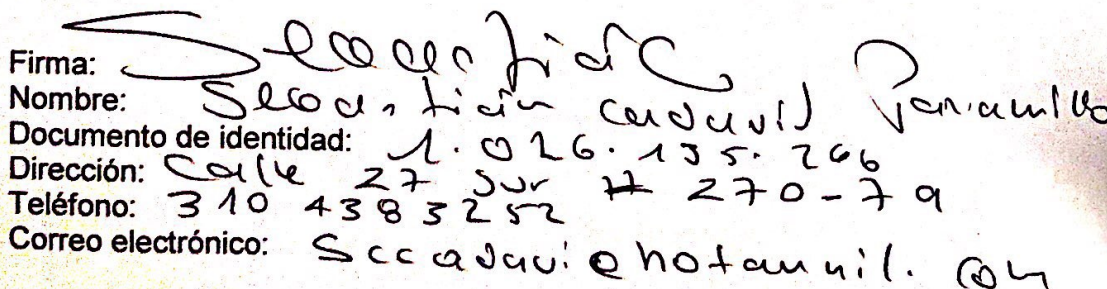 Firma: Sebastián C
Nombre: Sebastián Cadavid Jaramillo
Documento de identidad: 1.026.135.266
Dirección: Calle 27 Sur # 270-79
Teléfono: 310 4383252
Correo electrónico: Sccadavi@hotmail.com